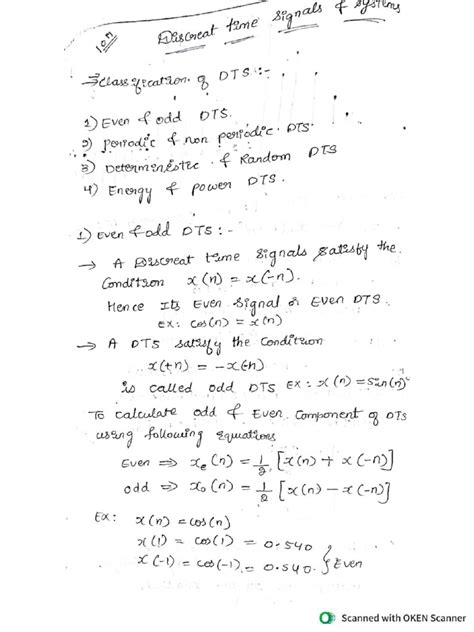 Discreat time Signals & Systems
→ Classification of DTS :-
1) Even & odd DTS.
2) periodic & non periodic DTS
3) Determinestec & Random DTS
4) Energy & power DTS.
1) Even & odd DTS :-
→ A Discreat time Signals Satisfy the
Condition x(n) = x(-n).
Hence Its Even Signal or Even DTS
Ex: cos(n) = x(n)
→ A DTS satisfy the Condition
x(+n) = -x(-n)
is called odd DTS Ex: x(n) = Sin(n)
To calculate odd & Even Component of DTS
using following equations
Even ⇒ xe(n) = 1/2 [x(n) + x(-n)]
odd ⇒ xo(n) = 1/2 [x(n) - x(-n)]
Ex: x(n) = cos(n)
x(1) = cos(1) = 0.540
x(-1) = cos(-1) = 0.540 } Even
Scanned with OKEN Scanner